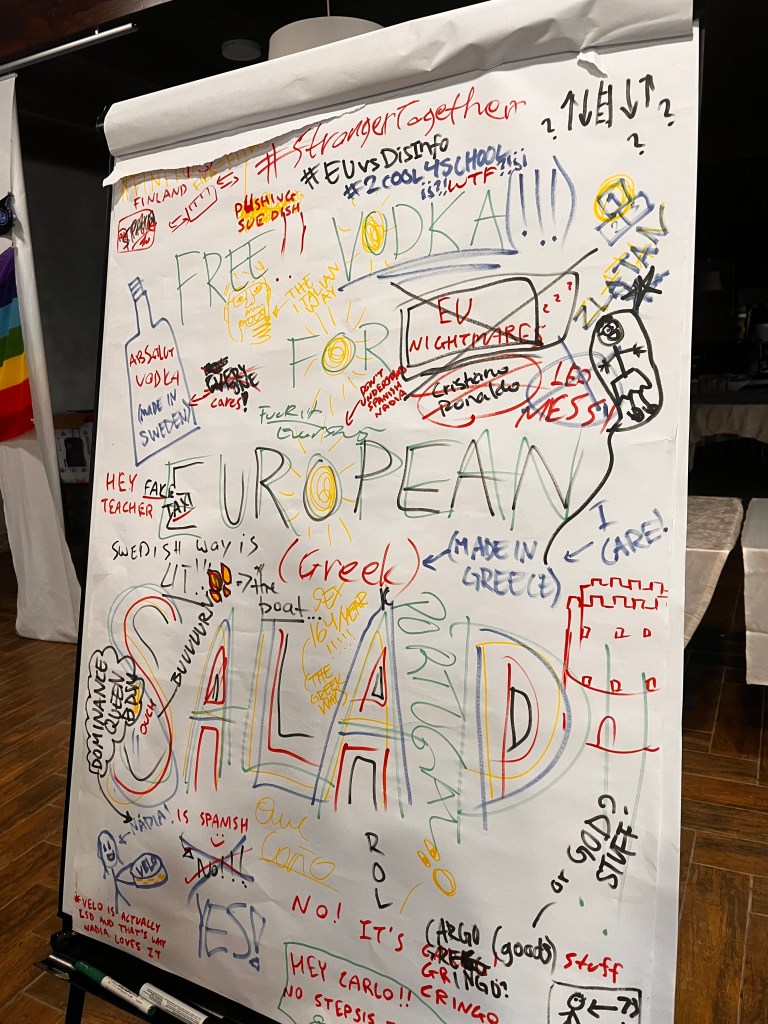 #StrongerTogether
#EUvsDisInfo
#2COOL4SCHOOL
¡¡?!?!WTF?!?!¡¡
? ?
?
FINLAND
PUSHING
SUEDISH
FREE VODKA (!!!)
THE
ITALIAN
WAY
ZLATAN
EU
NIGHTMARES
???
ABSOLUT
VODKA
(MADE IN
SWEDEN)
EVERY
ONE
cares!
FOR
DON'T
UNDERSTAND
SPANISH
NADIA
Cristiano
Ronaldo
LEO
MESSI
Fuck it
HEY
TEACHER
FAKE
TAXI
EUROPEAN
SWEDISH way is
LIT!!!
→ the
boat...
(Greek)
(MADE IN
GREECE)
I
CARE!
BUUUUURN
SEX
164/YEAR
!!!!!
(THE
GREEK
WAY)
SALAD
PORTUGAL
DOMINANCE
QUEEN
OUCH
NADIA!
VELO
IS SPANISH
No!!!
YES!
Que
Coño
ROL
#VELO IS ACTUALLY
LSD AND THAT'S WHY
NADIA LOVES IT
NO! IT'S
CARGO (goods)
or GOD?
STUFF?
stuff
GRINGO?
CRINGO
HEY CARLO!!
NO STEPSIS
??